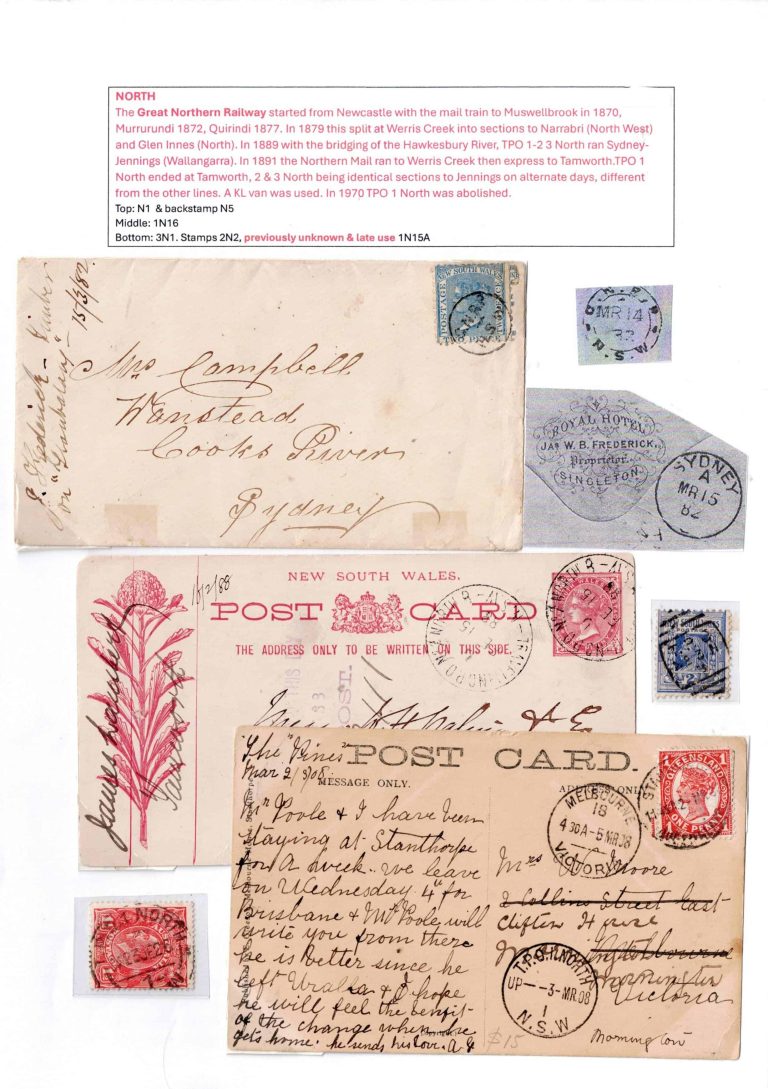 NORTH
The Great Northern Railway started from Newcastle with the mail train to Muswellbrook in 1870,
Murrurundi 1872, Quirindi 1877. In 1879 this split at Werris Creek into sections to Narrabri (North West)
and Glen Innes (North). In 1889 with the bridging of the Hawkesbury River, TPO 1-2 3 North ran Sydney-
Jennings (Wallangarra). In 1891 the Northern Mail ran to Werris Creek then express to Tamworth.TPO 1
North ended at Tamworth, 2 & 3 North being identical sections to Jennings on alternate days, different
from the other lines. A KL van was used. In 1970 TPO 1 North was abolished.
Top: N1 & backstamp N5
Middle: 1N16
Bottom: 3N1. Stamps 2N2, previously unknown & late use 1N15A
15/3/82
NEW SOUTH WALES
POSTAGE
TWO PENCE
Mrs Campbell
Wanstead
Cooks River
Sydney
MR 14
82
N.S.W
ROYAL HOTEL
JAS W. B. FREDERICK.
Proprietor.
SINGLETON.
SYDNEY
A
MR 15
82
NEW SOUTH WALES.
POST CARD
THE ADDRESS ONLY TO BE WRITTEN ON THIS SIDE.
15/2/88
James
POST CARD.
MESSAGE ONLY.
"The Pines"
Mar 2/3/08
Mr Poole & I have been
staying at Stanthorpe
for a week. we leave
on Wednesday 4th for
Brisbane & Mr Poole will
write you from there
he is better since he
left Uralla & I hope
he will feel the benefit
of the change when he
gets home. he sends his love. A.
QUEENSLAND
ONE PENNY
MELBOURNE
18
4 30A-5 MR 08
VICTORIA
Mrs Moore
2 Collins Street East
Clifton House
Melbourne
Mornington
Victoria
T.P.O.1.NORTH
UP - 3-MR.08
1
N.S.W
Mornington
$15